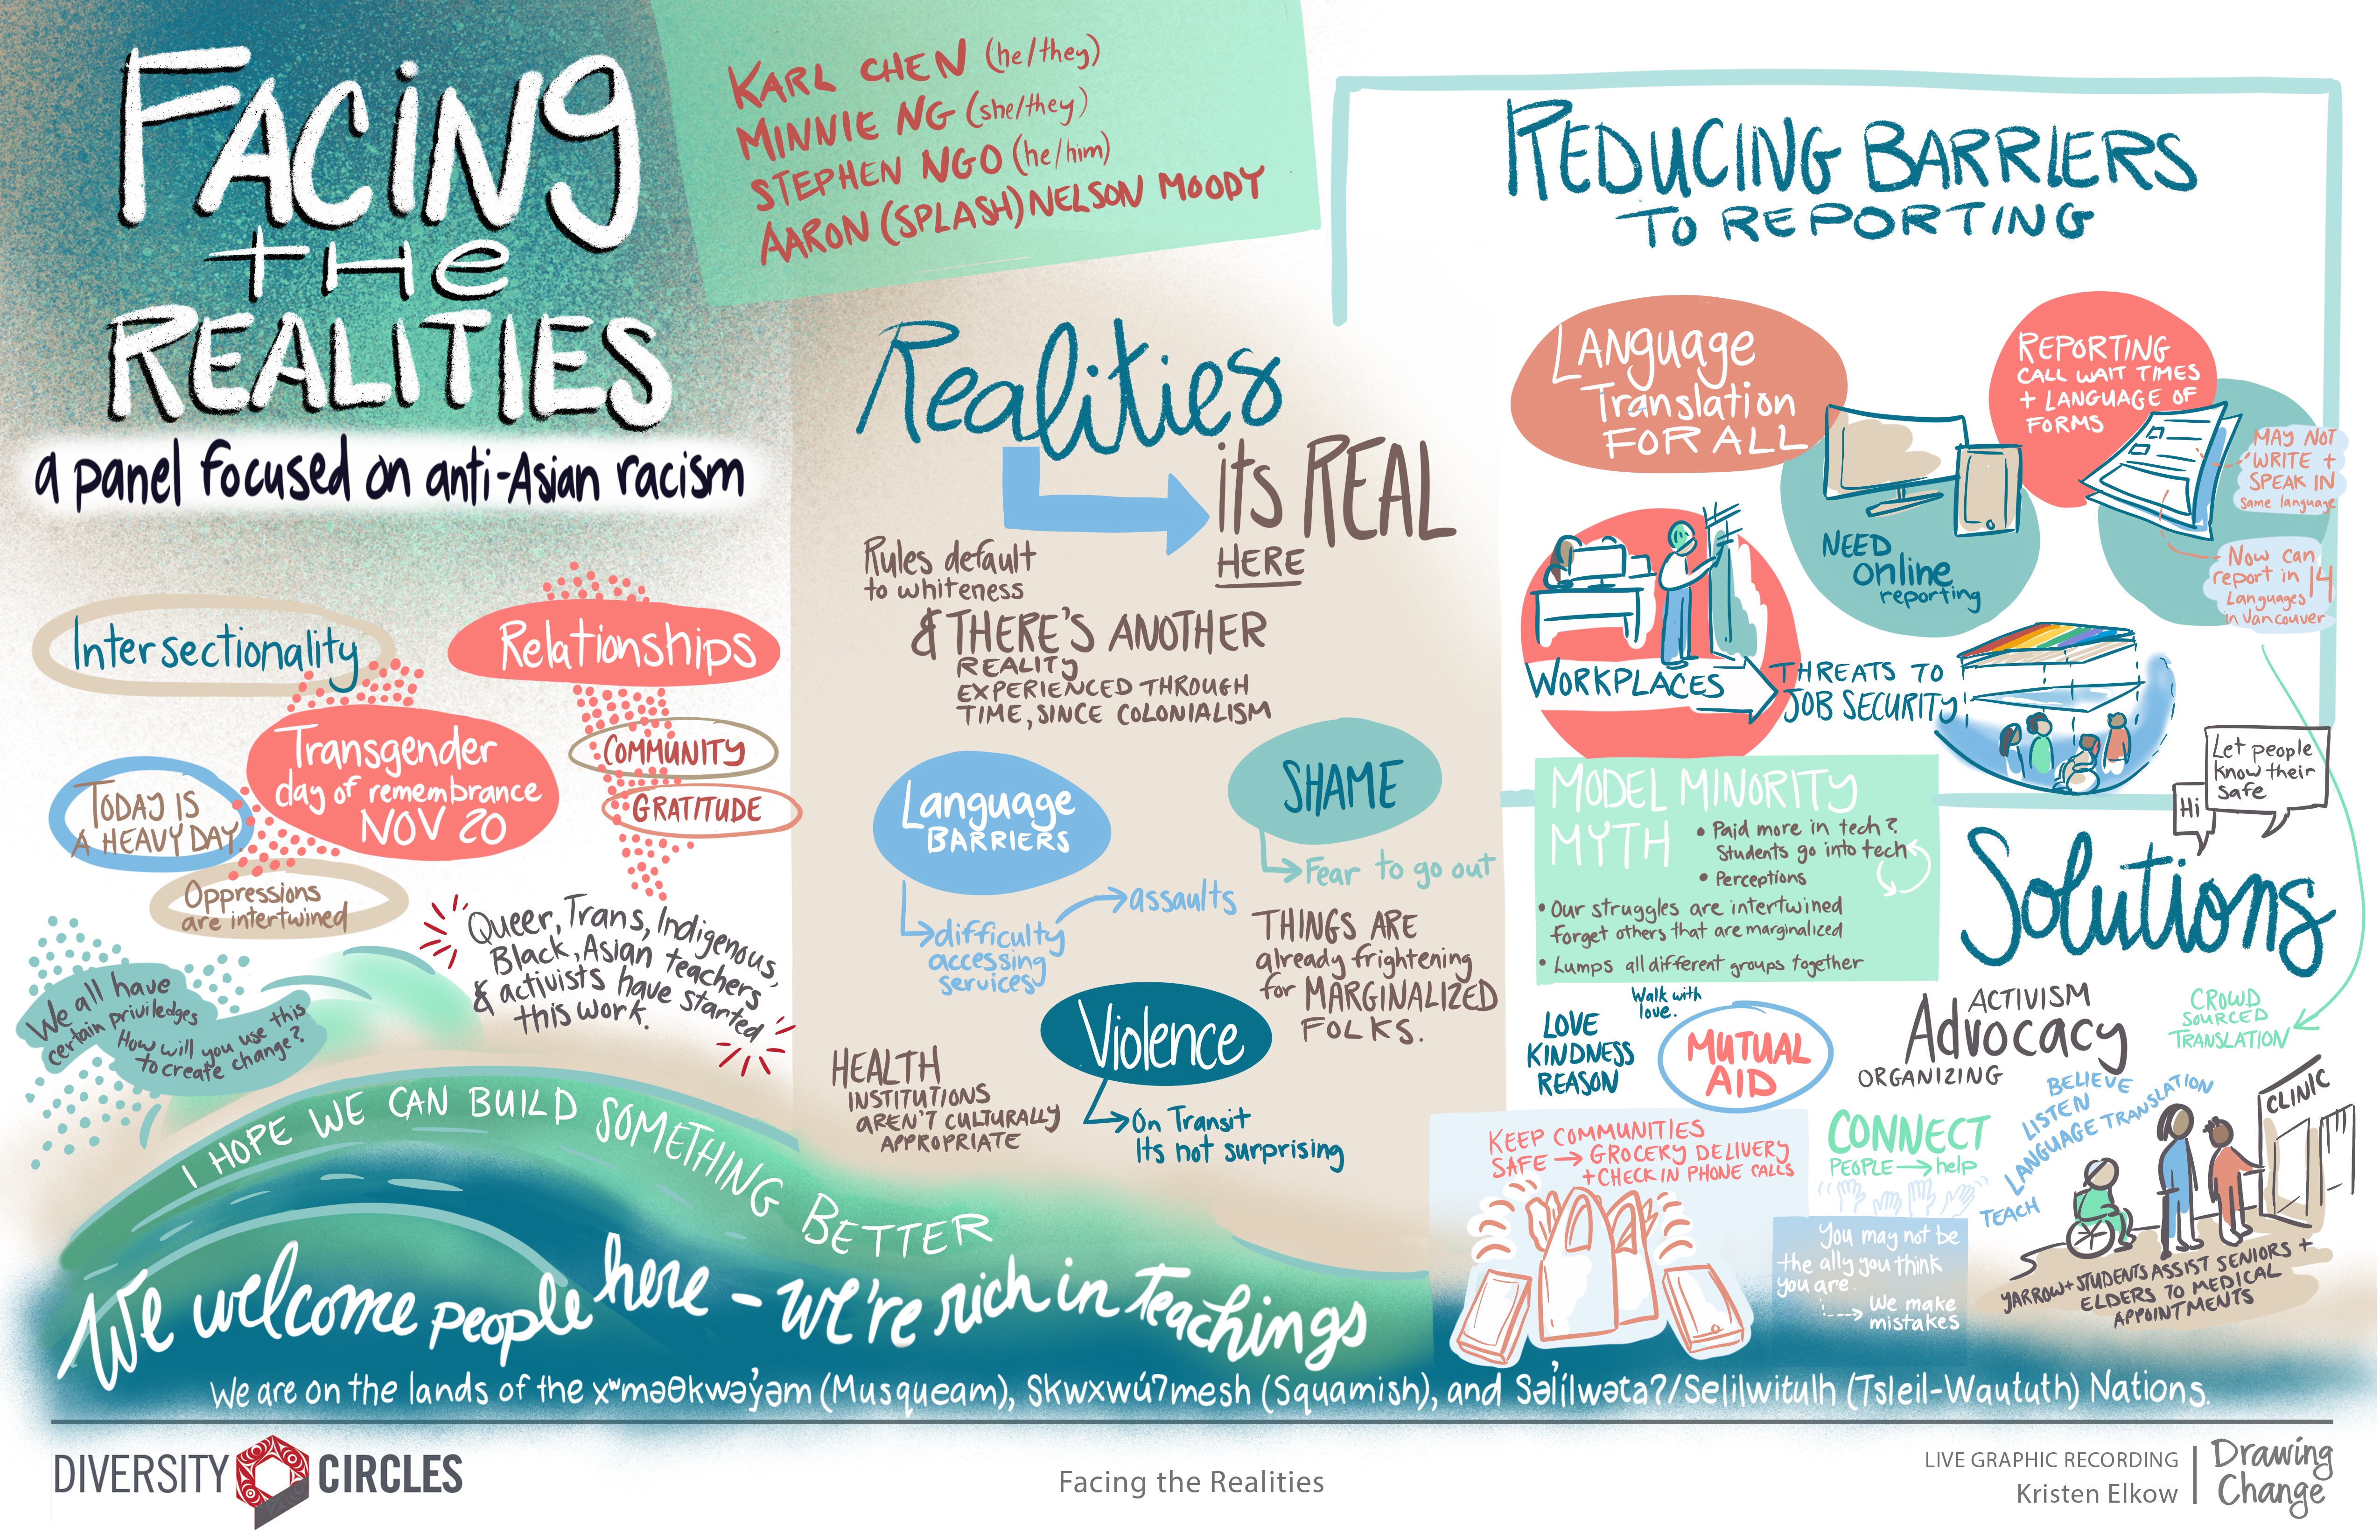 FACING
THE
REALITIES
a panel focused on anti-Asian racism
KARL CHEN (he/they)
MINNIE NG (she/they)
STEPHEN NGO (he/him)
AARON (SPLASH) NELSON MOODY
Intersectionality
Relationships
Transgender
day of remembrance
NOV 20
COMMUNITY
GRATITUDE
TODAY IS
A HEAVY DAY.
Oppressions
are intertwined
Queer, Trans, Indigenous,
Black, Asian teachers,
& activists have started
this work.
We all have
certain priviledges
How will you use this
to create change?
I HOPE WE CAN BUILD SOMETHING BETTER
We welcome people here - we're rich in teachings
Realities
its REAL
HERE
Rules default
to whiteness
& THERE'S ANOTHER
REALITY
EXPERIENCED THROUGH
TIME, SINCE COLONIALISM
Language
BARRIERS
difficulty
accessing
services
assaults
SHAME
Fear to go out
THINGS ARE
already frightening
for MARGINALIZED
FOLKS.
Violence
On Transit
Its not surprising
HEALTH
INSTITUTIONS
AREN'T CULTURALLY
APPROPRIATE
REDUCING BARRIERS
TO REPORTING
Language
Translation
FOR ALL
NEED
online
reporting
REPORTING
CALL WAIT TIMES
+ LANGUAGE OF
FORMS
MAY NOT
WRITE +
SPEAK IN
same language
Now can
report in 14
Languages
in Vancouver
WORKPLACES
THREATS TO
JOB SECURITY!
MODEL MINORITY
MYTH
• Paid more in tech?
Students go into tech
• Perceptions
• Our struggles are intertwined
forget others that are marginalized
• Lumps all different groups together
Hi
Let people
know their
safe
Solutions
LOVE
KINDNESS
REASON
Walk with
love.
MUTUAL
AID
ACTIVISM
Advocacy
ORGANIZING
CROWD
SOURCED
TRANSLATION
KEEP COMMUNITIES
SAFE → GROCERY DELIVERY
+ CHECK IN PHONE CALLS
CONNECT
PEOPLE → help
You may not be
the ally you think
you are.
We make
mistakes
BELIEVE
LISTEN
LANGUAGE TRANSLATION
TEACH
CLINIC
YARROW + STUDENTS ASSIST SENIORS +
ELDERS TO MEDICAL
APPOINTMENTS
We are on the lands of the xʷməθkwəy̓əm (Musqueam), Skwxwú7mesh (Squamish), and Səl̓ílwəta?/Selilwitulh (Tsleil-Waututh) Nations.
DIVERSITY CIRCLES
Facing the Realities
LIVE GRAPHIC RECORDING
Kristen Elkow
Drawing
Change